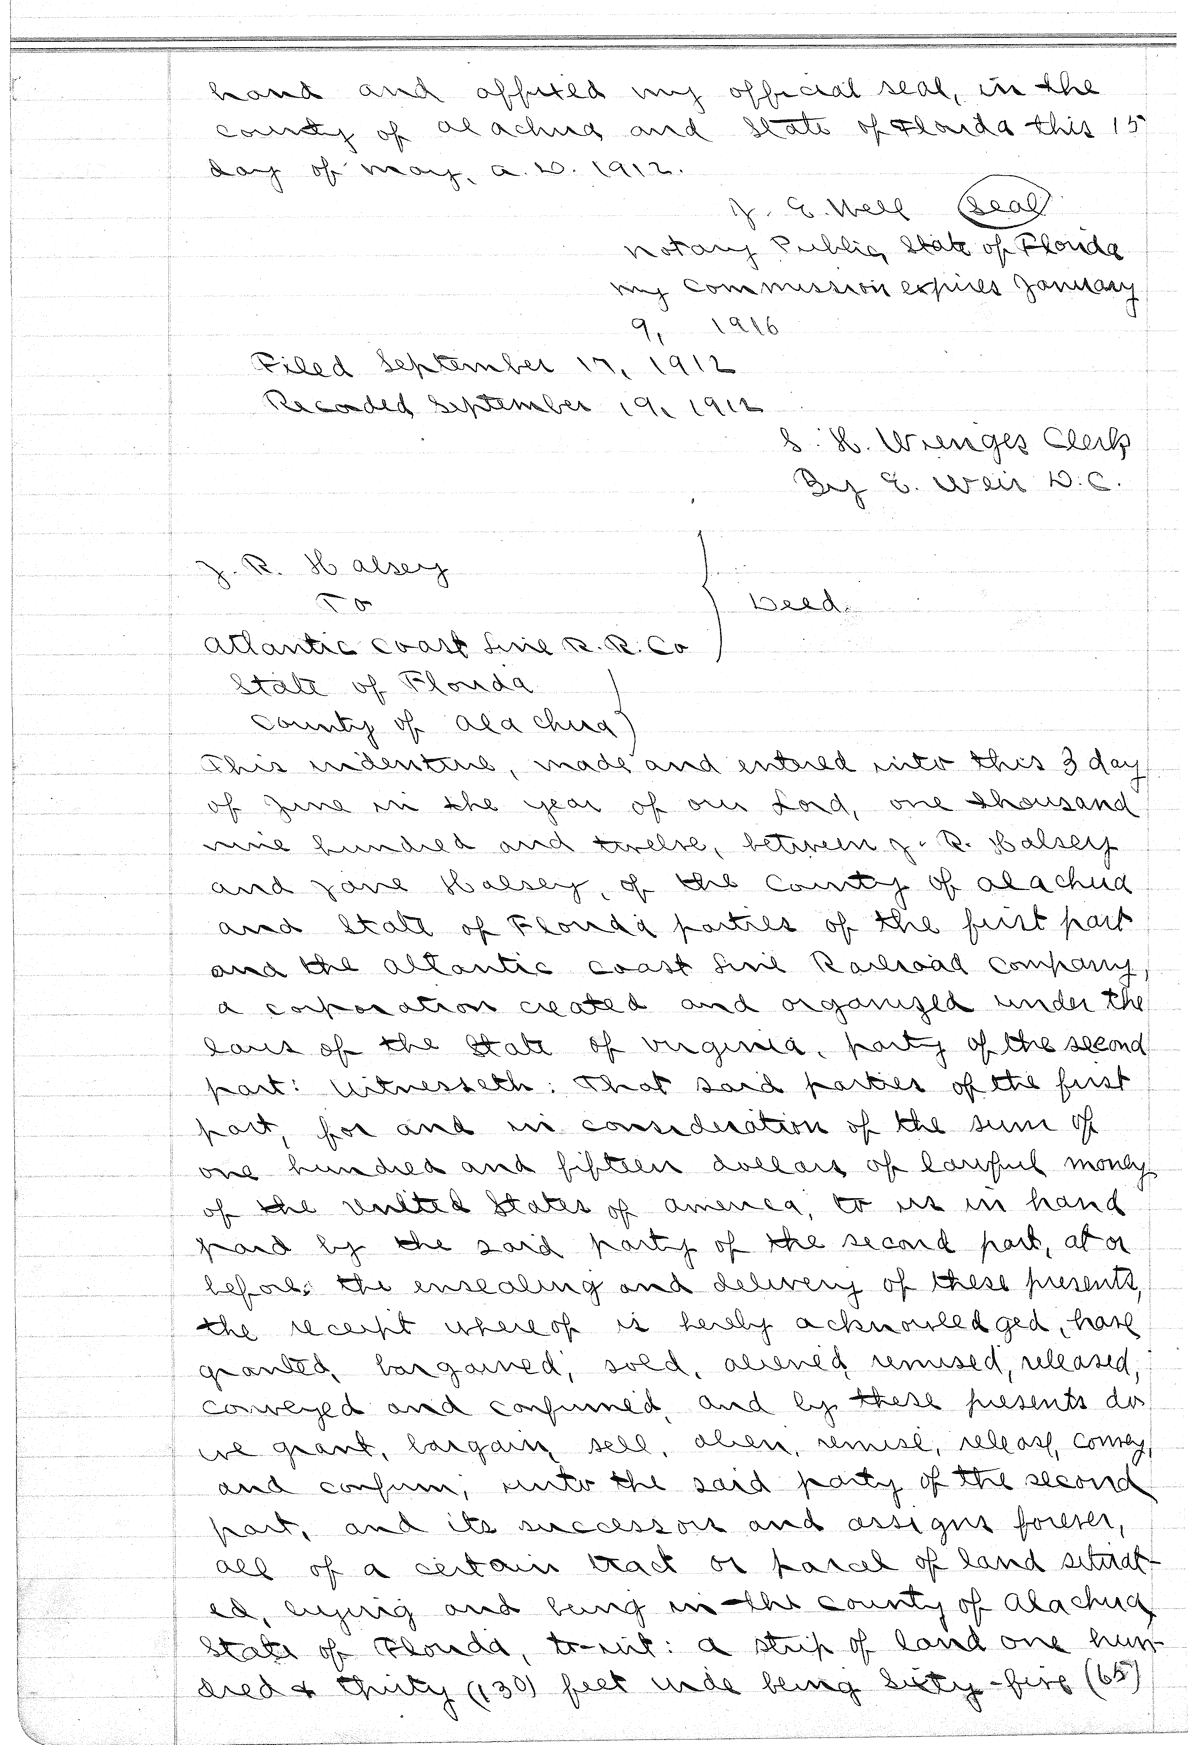 hand and affixed my official seal, in the
county of Alachua and State of Florida this 15
day of May, A. D. 1912.
J. E. Well Seal
Notary Public, State of Florida
my commission expires January
9, 1916
Filed September 17, 1912
Recorded September 19, 1912
S. H. Wienges Clerk
By E. Weir D.C.
J. R. Halsey
To
Deed.
Atlantic Coast Line R. R. Co
State of Florida
County of Alachua
This indenture, made and entered into this 3 day
of June in the year of our Lord, one thousand
nine hundred and twelve, between J. R. Halsey
and Jane Halsey, of the County of Alachua
and State of Florida parties of the first part
and the Atlantic Coast Line Railroad Company,
a corporation created and organized under the
laws of the State of Virginia, party of the second
part: Witnesseth: That said parties of the first
part, for and in consideration of the sum of
one hundred and fifteen dollars of lawful money
of the United States of America, to us in hand
paid by the said party of the second part, at or
before the ensealing and delivery of these presents,
the receipt whereof is hereby acknowledged, have
granted, bargained, sold, aliened, remised, released,
conveyed and confirmed, and by these presents do
we grant, bargain, sell, alien, remise, release, convey,
and confirm, unto the said party of the second
part, and its successors and assigns forever,
all of a certain tract or parcel of land situat-
ed, lying and being in the county of Alachua,
State of Florida, to-wit: a strip of land one hun-
dred & thirty (130) feet wide being Sixty-five (65)